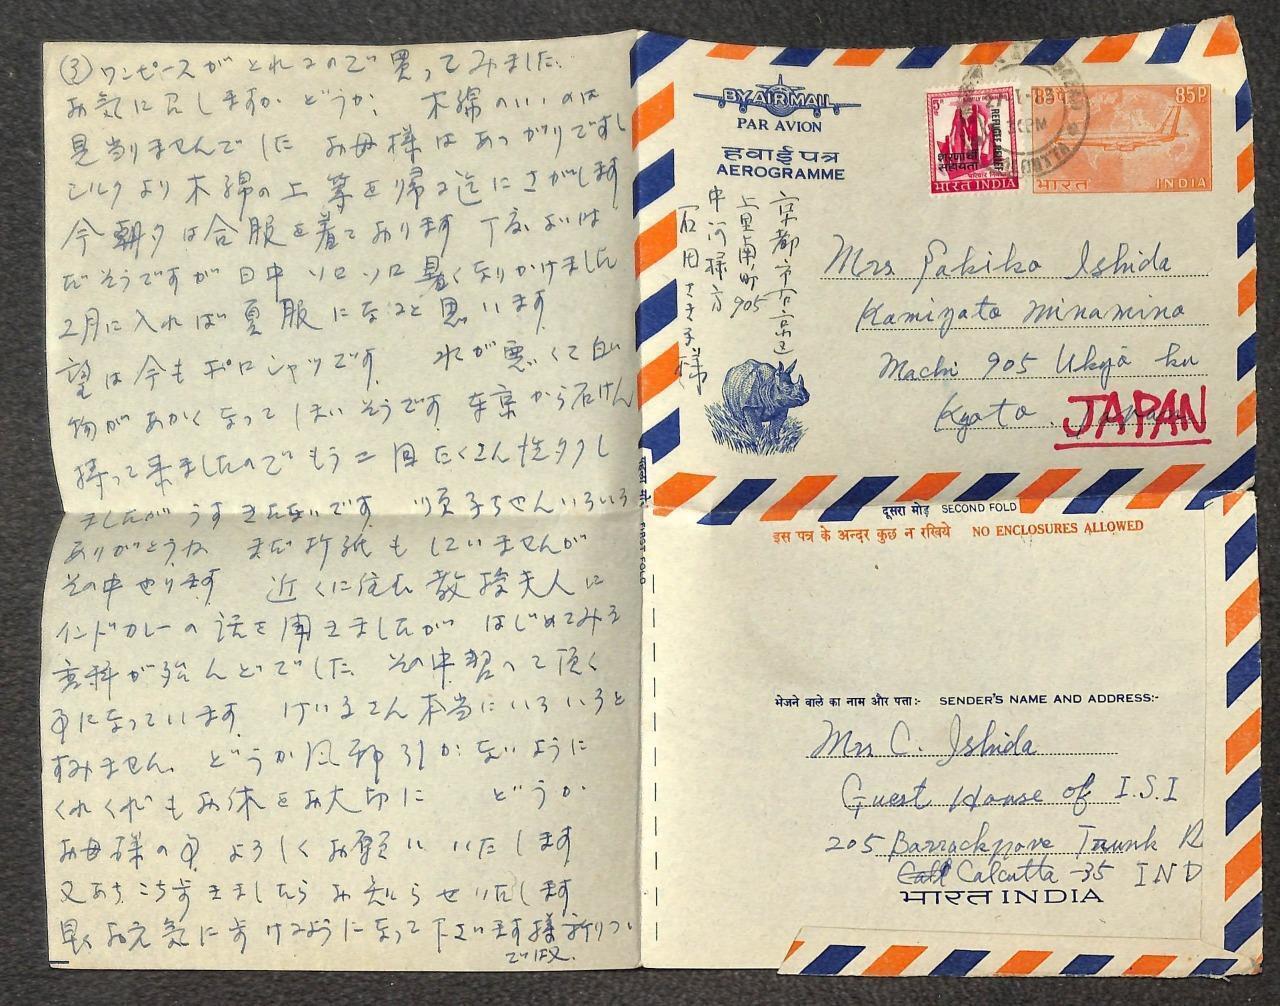 ③ワンピースがとれるので買ってみました.
お気に召しますかどうか、 木綿のいいのは
見当りませんでした お母様はあっがりですし
シルクより木綿の上等を帰る迄にさがします
今朝夕は合服を着ております 丁度よいは
だそうですが日中ソロソロ暑くなりかけました
2月に入れば夏服になると思います.
望は今もポロシャツです. 水が悪くて白い
物があかくなってしまいそうです. 東京から石けん
持って来ましたのでもう二回たくさん洗タクし
ましたがうすきたないです. 順子ちゃんいろいろ
ありがとうね まだ折紙もしていませんが
その中やります. 近くに住む教授夫人に
インドカレーの話を聞きましたが はじめてみる
香料が殆んどでした. その中習って頂く
事になっています. けい子さん本当にいろいろと
すみません. どうか風邪引かないように
くれぐれもお体をお大切に どうか
お母様の事 よろしくお願いいたします
又あちこち歩きましたらお知らせいたします.
早くお元気に歩けるようになって下さいます様祈りつつ
では又.
BY AIR MAIL
PAR AVION
हवाई पत्र
AEROGRAMME
REFUGEE RELIEF
शरणार्थी
सहायता
भारत INDIA
85 P
भारत INDIA
京都市右京区
上里南町905
中河様方
石田さき子様
Mrs Sakiko Ishida
Kamizato Minamino
Machi 905 Ukyo ku
Kyoto, Japan
JAPAN
पहला मोड़ FIRST FOLD
दूसरा मोड़ SECOND FOLD
इस पत्र के अन्दर कुछ न रखिये NO ENCLOSURES ALLOWED
भेजने वाले का नाम और पता:- SENDER'S NAME AND ADDRESS:-
Mrs C. Ishida
Guest House of I.S.I
205 Barrackpore Trunk R
Calcutta -35 IND
भारत INDIA